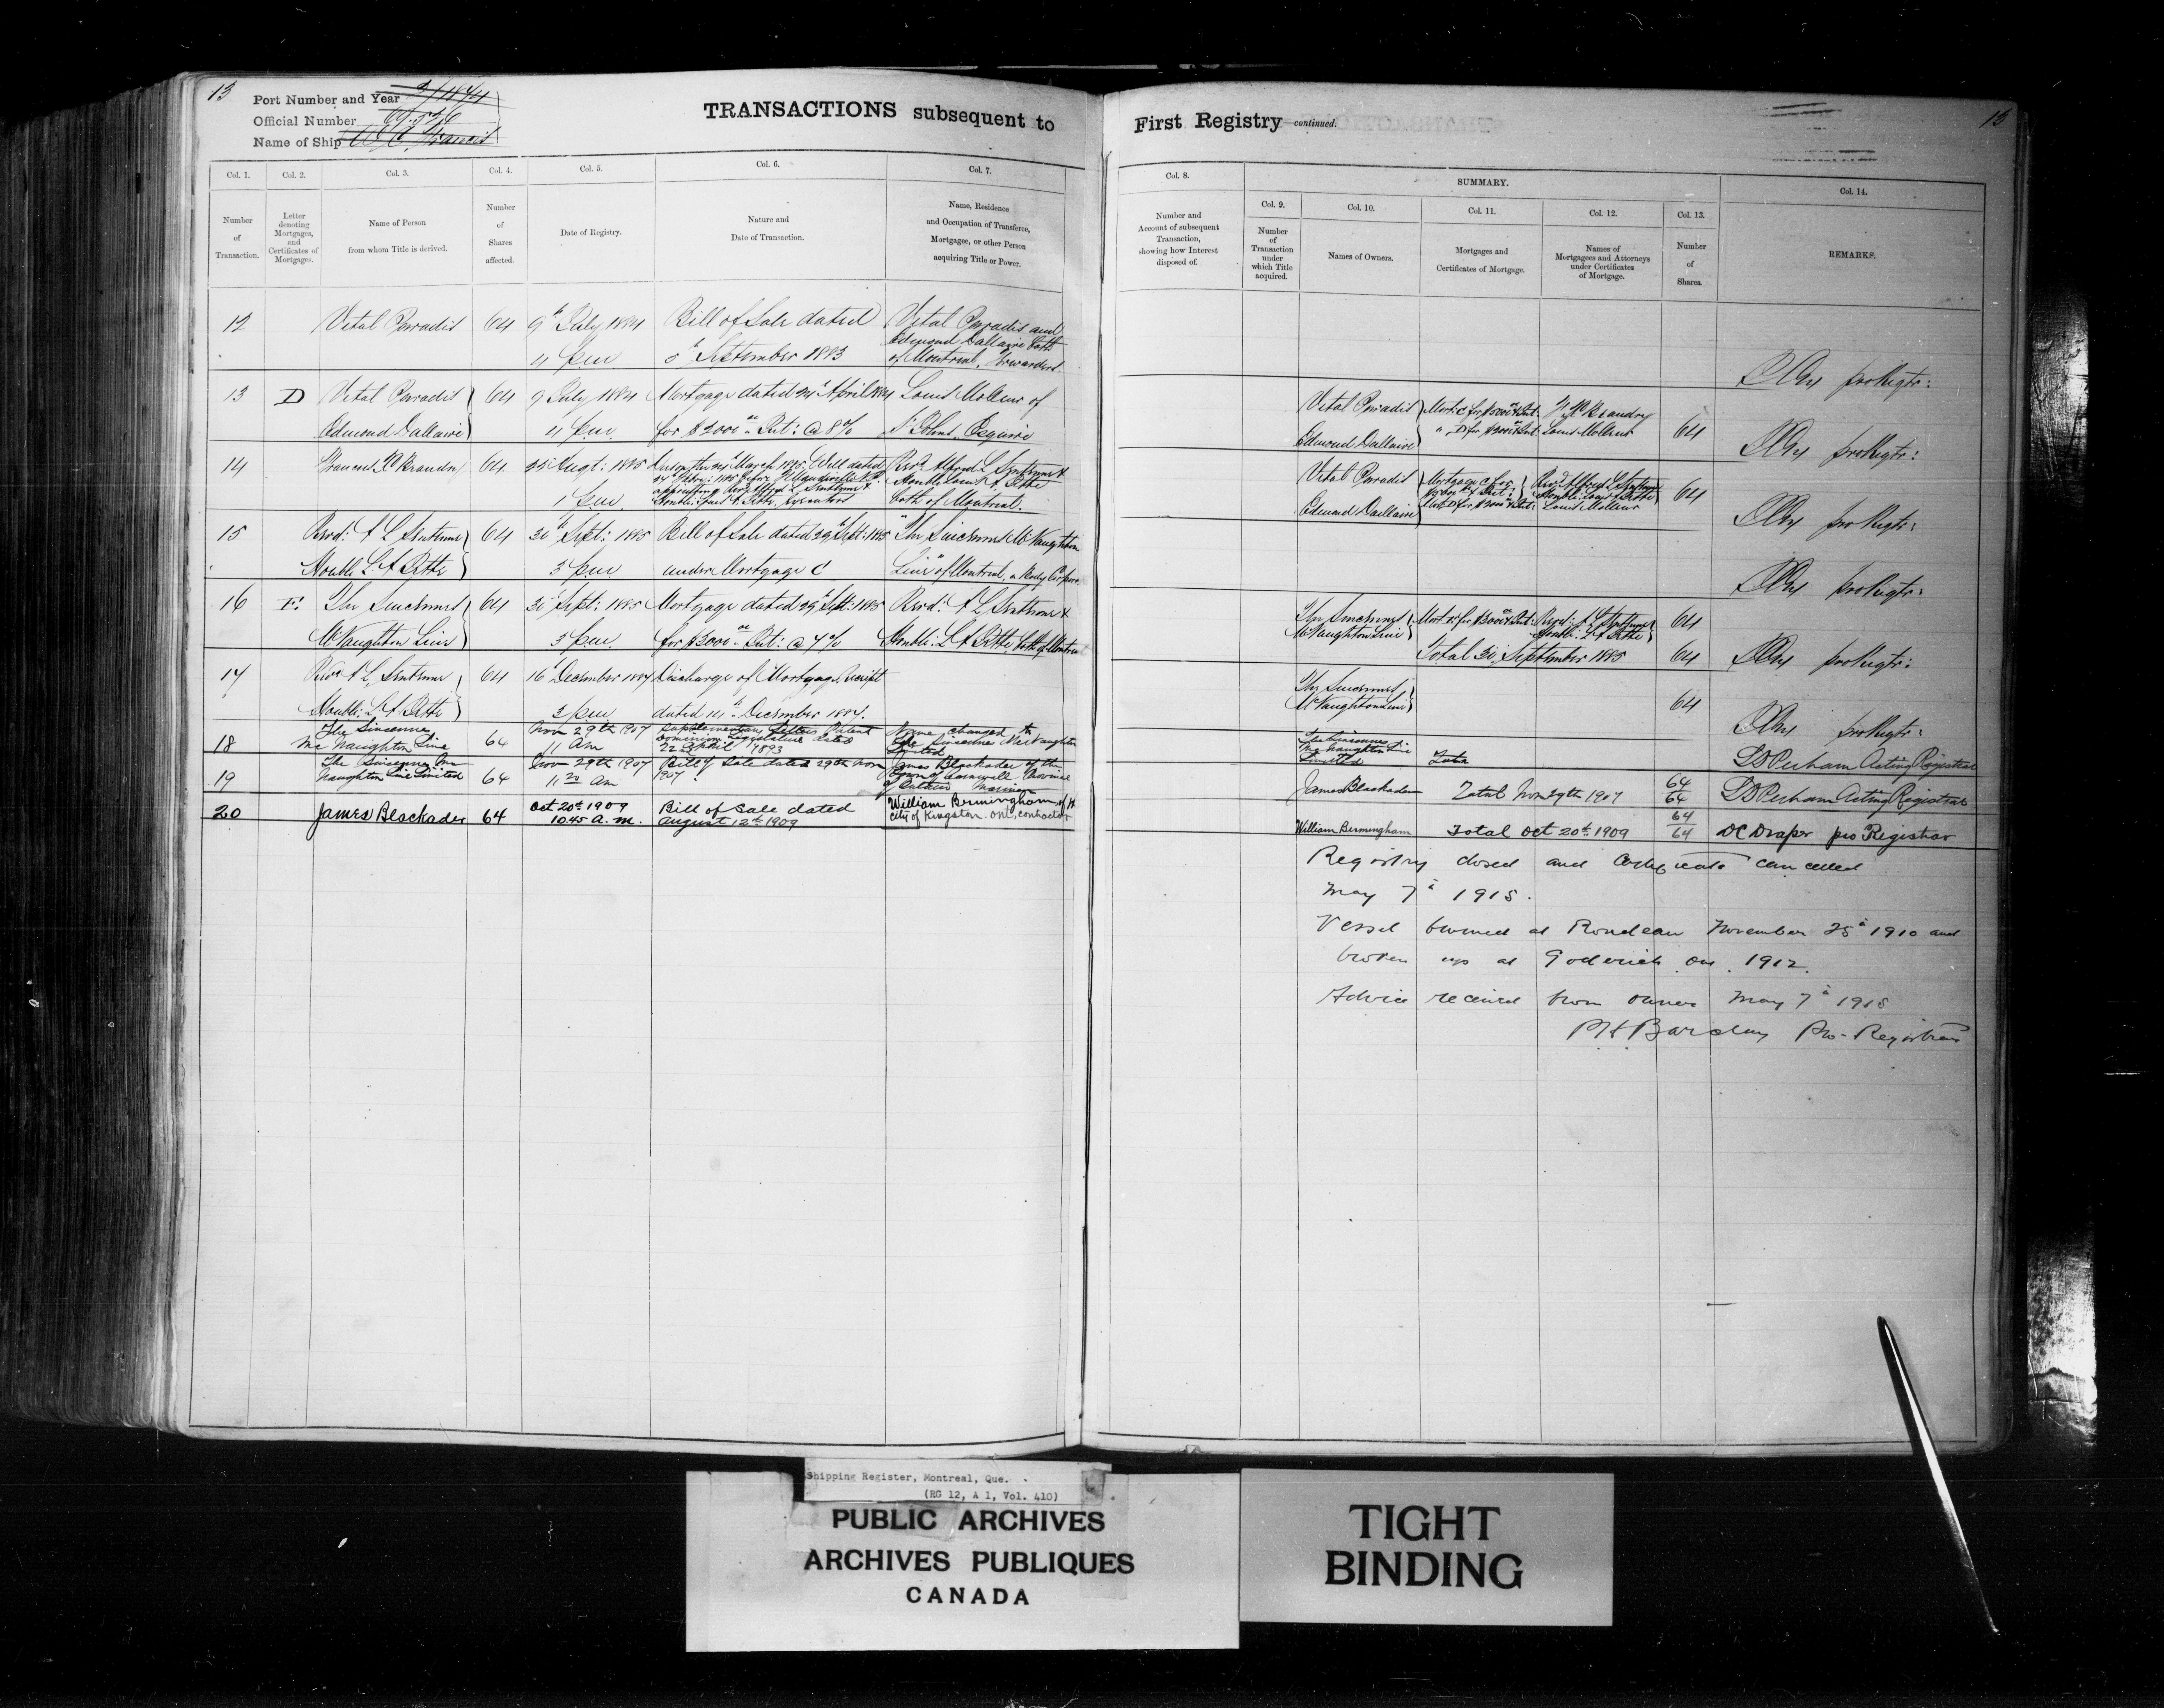 13
Port Number and Year 3/1874
Official Number
Name of Ship Francis
TRANSACTIONS subsequent to
Col. 1. Number of Transaction.
Col. 2. Letter denoting Mortgages, and Certificates of Mortgages.
Col. 3. Name of Person from whom Title is derived.
Col. 4. Number of Shares affected.
Col. 5. Date of Registry.
Col. 6. Nature and Date of Transaction.
Col. 7. Name, Residence and Occupation of Transferee, Mortgagee, or other Person acquiring Title or Power.
12 Vital Paradis 64 9th July 1884 Bill of Sale dated Vital Paradis and
Edmond Dallaire both
4 p.m. 5th September 1883 of Montreal, Forwarders
13 D Vital Paradis 64 9 July 1884 Mortgage dated 24th April 1884 Louis Molleur of
Edmond Dallaire 4 p.m. for $2000 Int: @ 8% St Johns, Esquire
14 64 25 Augt: 1885 March 1885. Will dated Revd Alfred L Sentenne &
appointing Revd Alfred L Sentenne & Honble Louis A Jette
1 p.m. Honble: Louis A. Jette, Executors both of Montreal.
15 Revd: A L Sentenne 64 30th Sept: 1885 Bill of Sale dated 29th Sept: 1885 "The Sincennes McNaughton
Honble L. A Jette 3 p.m. under Mortgage C Line" of Montreal, a Body Corpora
16 E. The Sincennes 64 30th Sept: 1885 Mortgage dated 29th Sept: 1885 Revd: A L Sentenne &
McNaughton Line 3 p.m. for $3000 Int: @ 7% Honble: L A Jette, both of Montreal
17 Revd A L Sentenne 64 16th December 1887 Discharge of Mortgage, Receipt
Honble: L A Jette 3 p.m. dated 14th December 1887.
18 The Sincennes McNaughton Line 64 Nov 29th 1907 11 Am Supplementary Letters Patent Dominion Legislature dated 22nd April 1893 Name changed to The Sincennes McNaughton Line Limited
19 The Sincennes Mc Naughton Line Limited 64 Nov 29th 1907 11 20 Am Bill of Sale dated 29th Nov 1907 James Blackader of the Town of Cornwall Province of Ontario Mariner
20 James Blackader 64 Oct 20th 1909 10.45 A. M. Bill of Sale dated August 12th 1909 William Bermingham of the City of Kingston. Ont, contractor
First Registry—continued.
13
Col. 8. Number and Account of subsequent Transaction, showing how Interest disposed of.
SUMMARY.
Col. 9. Number of Transaction under which Title acquired.
Col. 10. Names of Owners.
Col. 11. Mortgages and Certificates of Mortgage.
Col. 12. Names of Mortgagees and Attorneys under Certificates of Mortgage.
Col. 13. Number of Shares.
Col. 14. REMARKS.
pro Regtr:
Vital Paradis Mort: C for $3000 & Int:
Edmond Dallaire " D for $2000 & Int: Louis Molleur 64
pro Regtr:
Vital Paradis Mortgage C for Revd Alfred L Sentenne
$3000 & Int: Honble: Louis A Jette 64
Edmond Dallaire Mort: D for $2000 & Int: Louis Molleur
pro Regtr:
pro Regtr:
The Sincennes Mort E for $3000 & Int: Revd: A L Sentenne 64
McNaughton Line Honble: L A Jette
Total 30 September 1885 64 pro Regtr:
The Sincennes
McNaughton Line 64
pro Regtr:
The Sincennes McNaughton Line Limited Total Acting Registrar
James Blackader Total Nov 29th 1907 64/64 Acting Registrar
William Bermingham Total Oct 20th 1909 64/64 DC Draper pro Registrar
Registry closed and Certificate cancelled
May 7th 1915.
Vessel burned at Rondeau November 25th 1910 and
broken up at Goderich Ont. 1912.
Advice received from owner May 7th 1915
Barclay Pro-Registrar
Shipping Register, Montreal, Que.
(RG 12, A 1, Vol. 410)
PUBLIC ARCHIVES
ARCHIVES PUBLIQUES
CANADA
TIGHT
BINDING